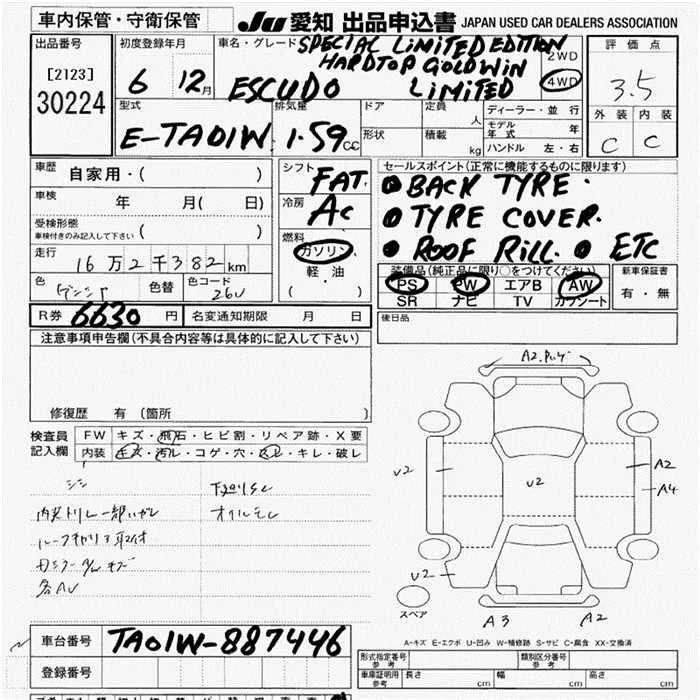 車内保管・守衛保管
JU 愛知 出品申込書 JAPAN USED CAR DEALERS ASSOCIATION
出品番号
[2123]
30224
初度登録年月
6 12月
車名・グレード SPECIAL LIMITED EDITION
HARDTOP GOLDWIN
ESCUDO LIMITED
2WD
4WD
評価点
3.5
外装 内装
C C
型式
E-TA01W
排気量
1.59cc
ドア
定員 人
形状
積載 kg
ディーラー・並行
モデル年式 年
ハンドル 左・右
車歴
自家用・( )
車検
年 月( 日)
受検形態
車検付きのみ記入して下さい ( )
走行
16万2千382km
色
色替
色コード
26U
シフト
FAT.
冷房
AC
燃料
ガソリン
軽・油
( )
セールスポイント(正常に機能するものに限ります)
●BACK TYRE.
●TYRE COVER.
●ROOF RILL. ● ETC
装備品(純正品に限り○をつけてください)
PS PW エアB AW
SR ナビ TV カワシート
新車保証書
有・無
R券 6630 円
名変通知期限 月 日
後日品
注意事項申告欄(不具合内容等は具体的に記入して下さい)
修復歴 有 (箇所 )
検査員
記入欄
FW キズ・飛石・ヒビ割・リペア跡・X要
内装 キズ・汚レ・コゲ・穴・スレ・キレ・破レ
オイルモレ
A2
U2
U2
A2
A4
U2
スペア
A3
A2
A-キズ E-エクボ U-凹み W-補修跡 S-サビ C-腐食 XX-交換済
車台番号 TA01W-887446
登録番号
形式指定番号
参考
類別区分番号
参考
車庫証明用
参考
長さ cm
幅 cm
高さ cm